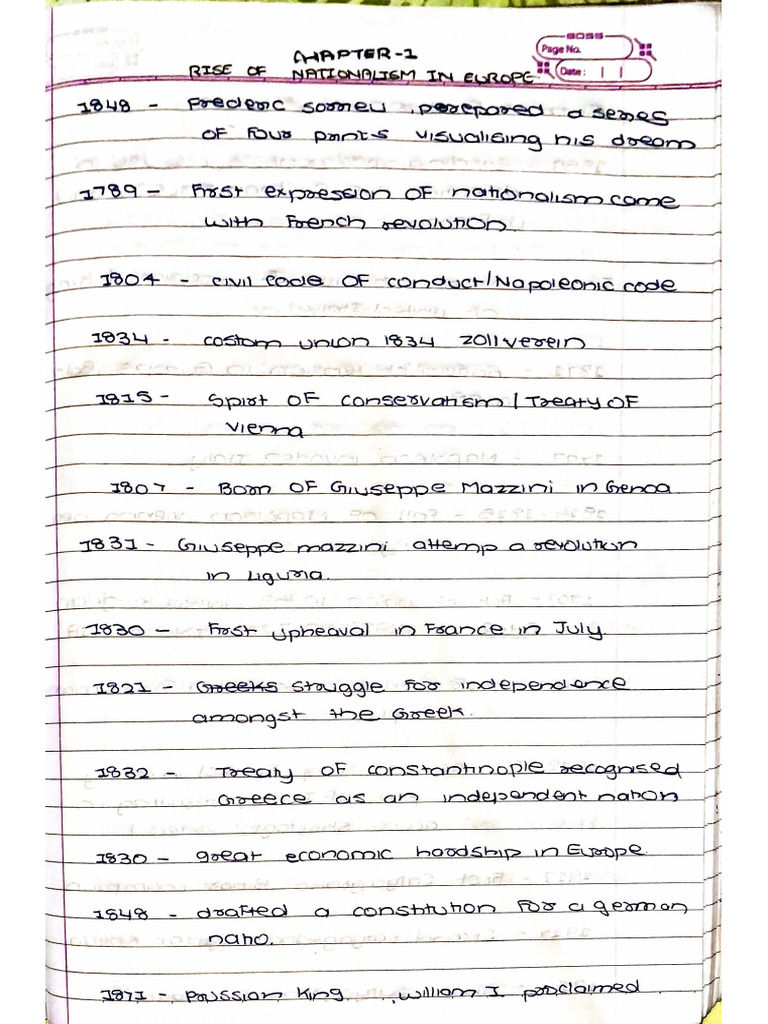 CHAPTER-1
BOSS
Page No.
RISE OF NATIONALISM IN EUROPE.
Date: | |
1848 - Frederic sorrieu prepared a series
of four prints visualising his dream
1789 - First expression of nationalism came
with French revolution.
1804 - civil code of conduct/Napoleonic code
1834 - costom union 1834 zollverein
1815 - Spirt of conservatism / Treaty of
vienna
1807 - Born of Giuseppe Mazzini in Genoa
1831 - Giuseppe mazzini attemp a revolution
in Liguria.
1830 - First upheaval in France in July.
1821 - Greeks struggle for independence
amongst the Greek.
1832 - Treaty of constantinople recognised
Greece as an independent nation
1830 - great economic hardship in Europe.
1848 - drafted a constitution for a german
natio.
1871 - Prussian King william I proclaimed